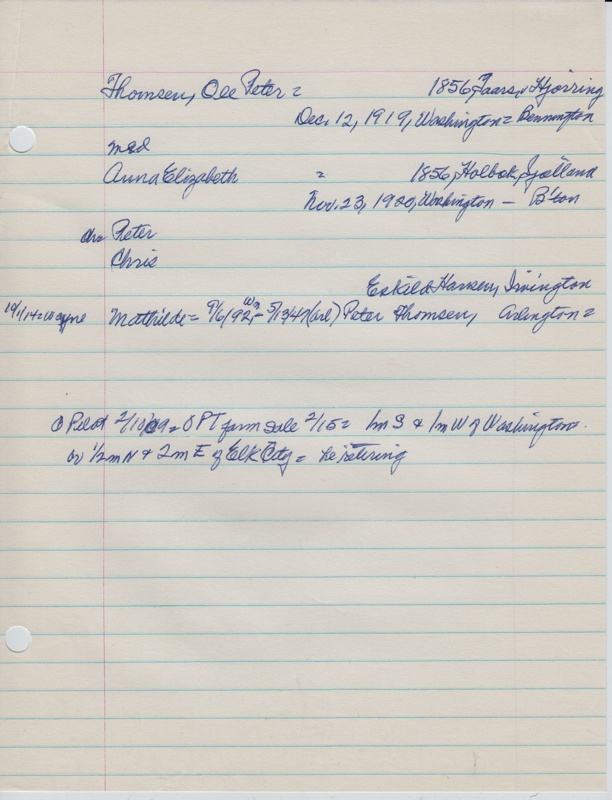 Thomsen, Ole Peter = 1856, Taars, Hjorring
Dec. 12, 1919, Washington = Bennington
med
Anna Elizabeth = 1856, Holbak, Sjælland
Nov. 23, 1920, Washington — B'ton
ch= Peter
Chris
Eskild Hansen, Irvington
10/1/14= Mathilde = 9/6/92, Wn - 5/13/47 (arl) Peter Thomsen, Arlington =
O Pilot 2/10/09 = O P T farm sale 2/15 = 1m S & 1m W of Washington.
or 1/2 m N & 2 m E of Elk City = he retiring